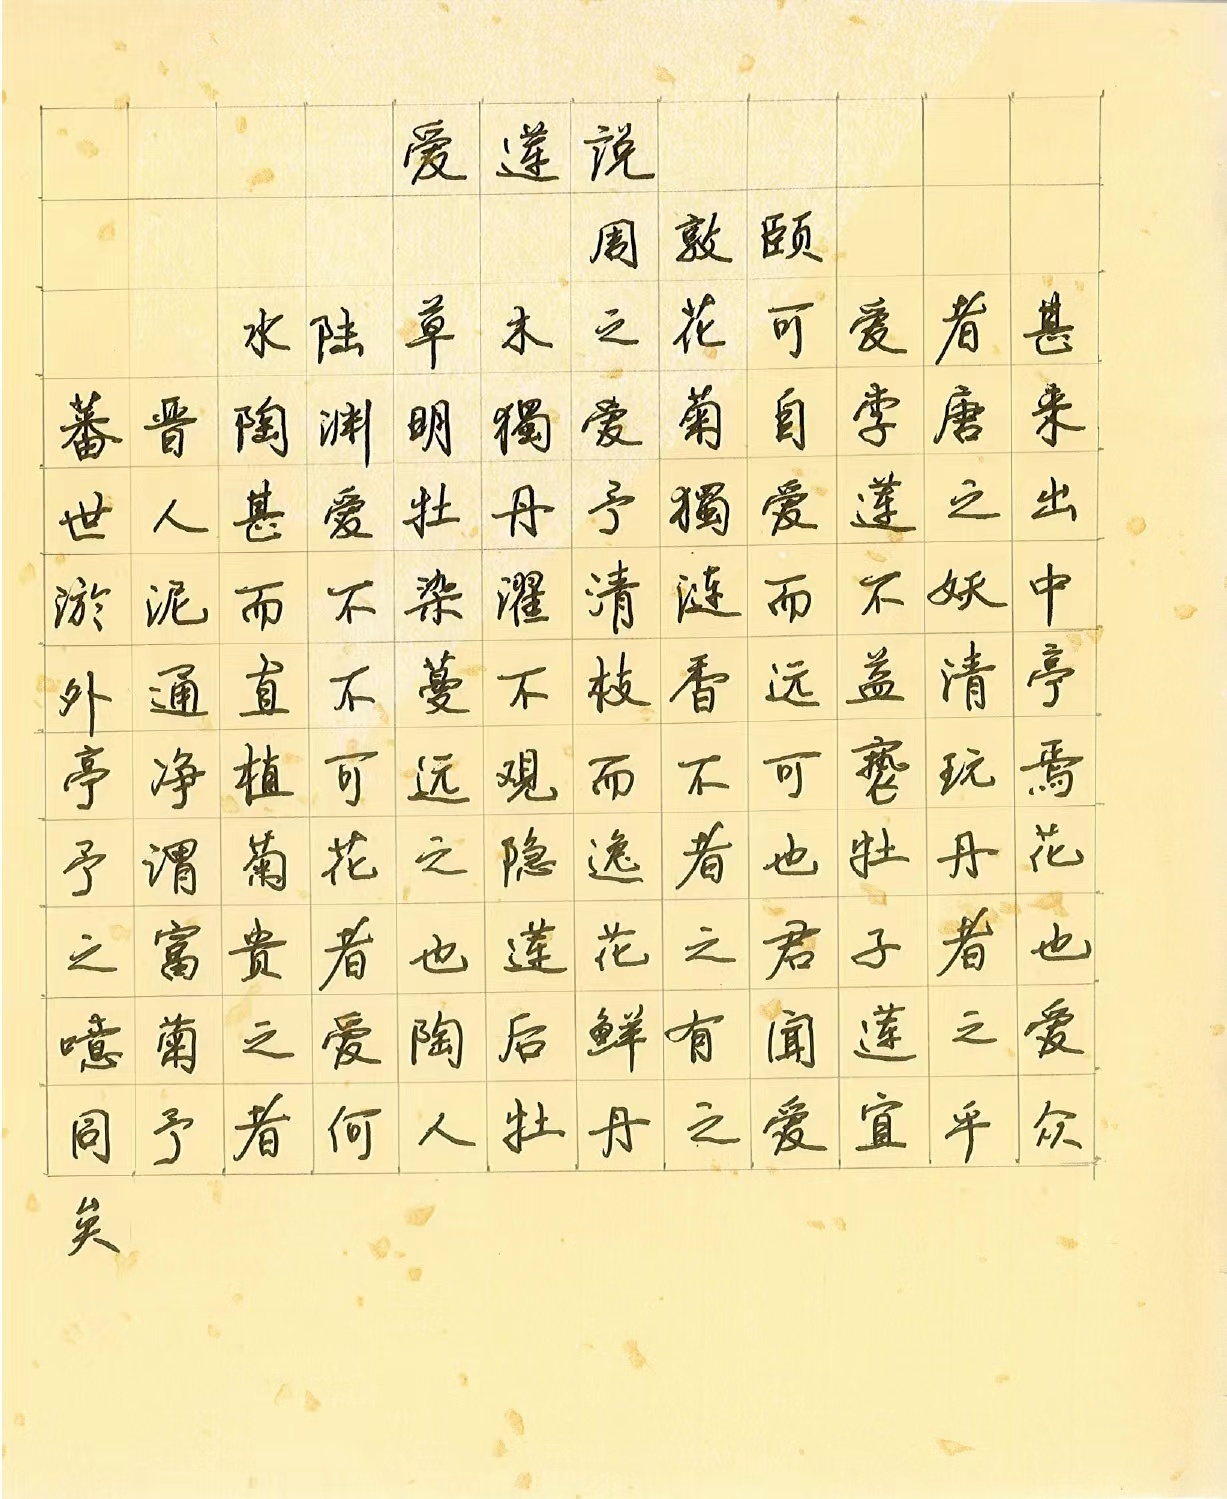 爱莲説
周敦颐
水陆草木之花可爱者甚
蕃晋陶渊明獨爱菊自李唐来
世人甚爱牡丹予獨爱莲之出
淤泥而不染濯清涟而不妖中
外通直不蔓不枝香远益清亭
亭净植可远观而不可亵玩焉
予谓菊花之隐逸者也牡丹花
之富贵者也莲花之君子者也
噫菊之爱陶后鲜有闻莲之爱
同予者何人牡丹之爱宜乎众
矣